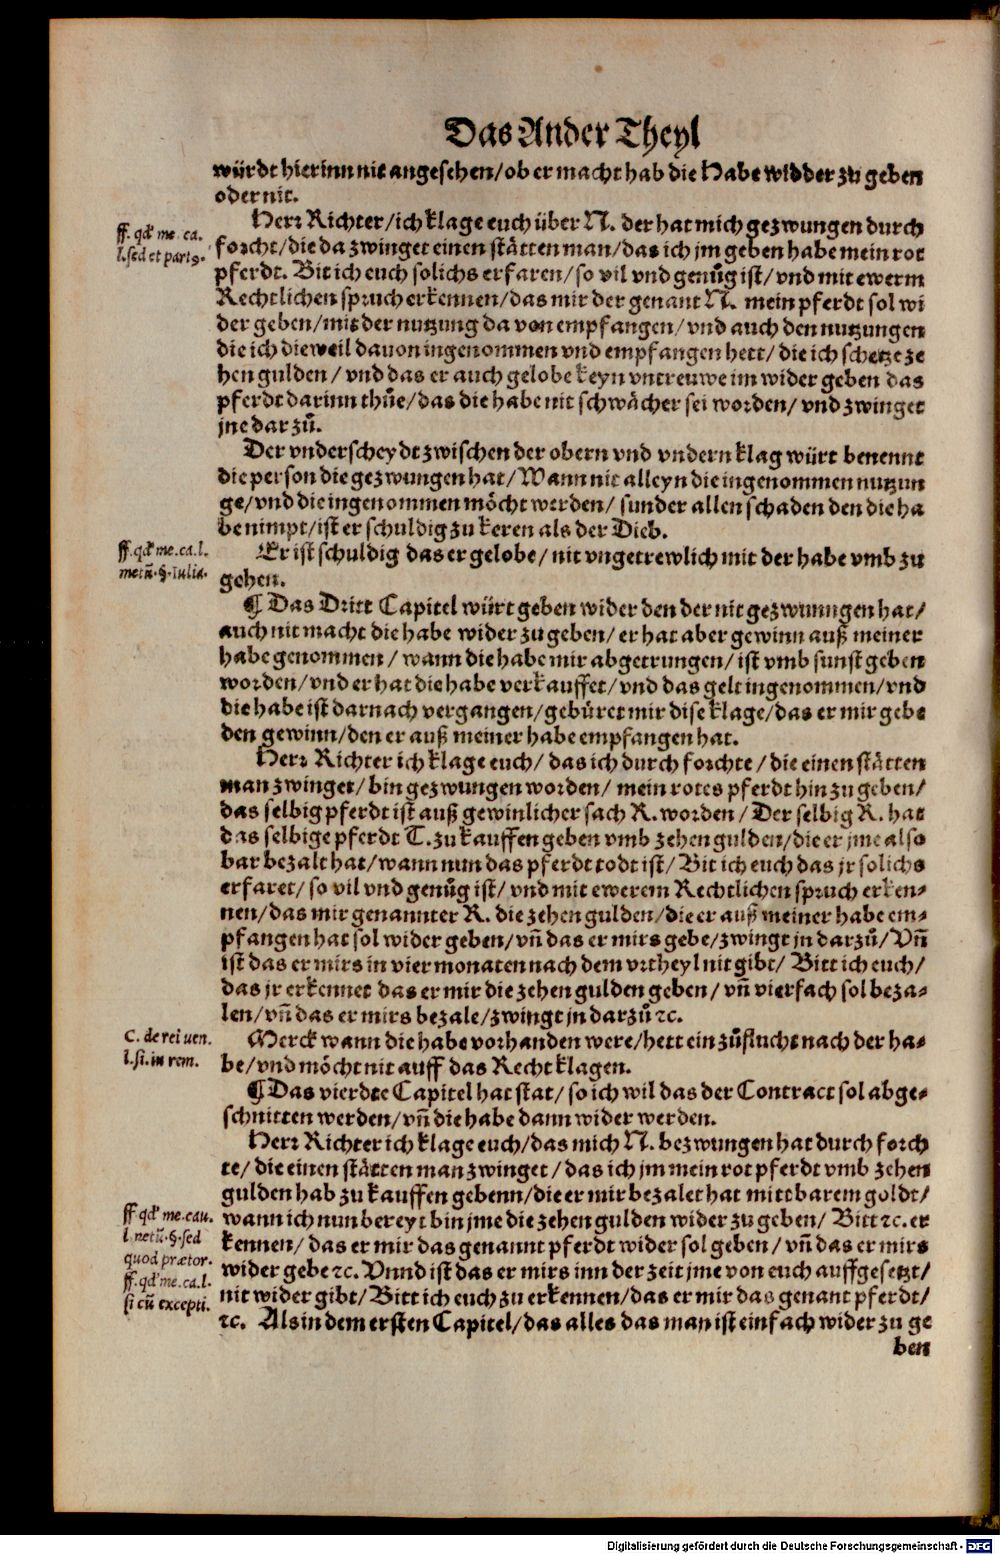 Das Ander Theyl
würdt hierinn nit angesehen/ob er macht hab die Habe widder zu geben
oder nit.
Herr Richter/ich klage euch über N. der hat mich gezwungen durch
ff. qď me. ca.
l. sed et partꝰ.
forcht/die da zwinget einen stätten man/das ich jm geben habe mein rot
pferdt. Bit ich euch solichs erfaren/so vil vnd genůg ist/vnd mit ewerm
Rechtlichen spruch erkennen/das mir der genant N. mein pferdt sol wi
der geben/mit der nutzung da von empfangen/vnd auch den nutzungen
die ich dieweil dauon ingenommen vnd empfangen hett/die ich schetze ze
hen gulden/vnd das er auch gelobe keyn vntreuwe im wider geben das
pferdt darinn thůe/das die habe nit schwächer sei worden/vnd zwinget
jne darzů.
Der vnderscheydt zwischen der obern vnd vndern klag würt benennt
die person die gezwungen hat/Wann nit alleyn die ingenommen nutzun
ge/vnd die ingenommen möcht werden/sunder allen schaden den die ha
be nimpt/ist er schuldig zu keren als der Dieb.
ff. qď me. ca. l.
metū. §. Iulia.
Er ist schuldig das er gelobe/nit vngetrewlich mit der habe vmb zu
gehen.
¶ Das Dritt Capitel würt geben wider den der nit gezwunngen hat/
auch nit macht die habe wider zu geben/er hat aber gewinn auß meiner
habe genommen/wann die habe mir abgetrungen/ist vmb sunst geben
worden/vnd er hat die habe verkauffet/vnd das gelt ingenommen/vnd
die habe ist darnach vergangen/gebüret mir dise klage/das er mir gebe
den gewinn/den er auß meiner habe empfangen hat.
Herr Richter ich klage euch/das ich durch forchte/die einen stätten
man zwinget/bin gezwungen worden/mein rotes pferdt hin zu geben/
das selbig pferdt ist auß gewinlicher sach R. worden/Der selbig R. hat
das selbige pferdt T. zu kauffen geben vmb zehen gulden/die er jme also
bar bezalt hat/wann nun das pferdt todt ist/Bit ich euch das jr solichs
erfaret/so vil vnd genůg ist/vnd mit ewerem Rechtlichen spruch erken-
nen/das mir genannter R. die zehen gulden/die er auß meiner habe em-
pfangen hat sol wider geben/vñ das er mirs gebe/zwingt jn darzů/Vñ
ist das er mirs in vier monaten nach dem vrtheyl nit gibt/Bitt ich euch/
das jr erkennet das er mir die zehen gulden geben/vñ vierfach sol beza-
len/vñ das er mirs bezale/zwingt jn darzů ꝛc.
C. de rei uen.
l. si. in rem.
Merck wann die habe vorhanden were/hett ein zůflucht nach der ha-
be/vnd möcht nit auff das Recht klagen.
¶ Das vierdte Capitel hat stat/so ich wil das der Contract sol abge-
schnitten werden/vñ die habe dann wider werden.
Herr Richter ich klage euch/das mich N. bezwungen hat durch forch
te/die einen stätten man zwinget/das ich jm mein rot pferdt vmb zehen
gulden hab zu kauffen gebenn/die er mir bezalet hat mitt barem goldt/
ff. qď me. cau.
l. metū. §. sed
quod prætor.
ff. qď me. ca. l.
si cū excepti.
wann ich nun bereyt bin jme die zehen gulden wider zu geben/Bitt ꝛc. er
kennen/das er mir das genannt pferdt wider sol geben/vñ das er mirs
wider gebe ꝛc. Vnnd ist das er mirs inn der zeit jme von euch auffgesetzt/
nit wider gibt/Bitt ich euch zu erkennen/das er mir das genant pferdt/
ꝛc. Als in dem ersten Capitel/das alles das man ist einfach wider zu ge
ben
Digitalisierung gefördert durch die Deutsche Forschungsgemeinschaft - DFG